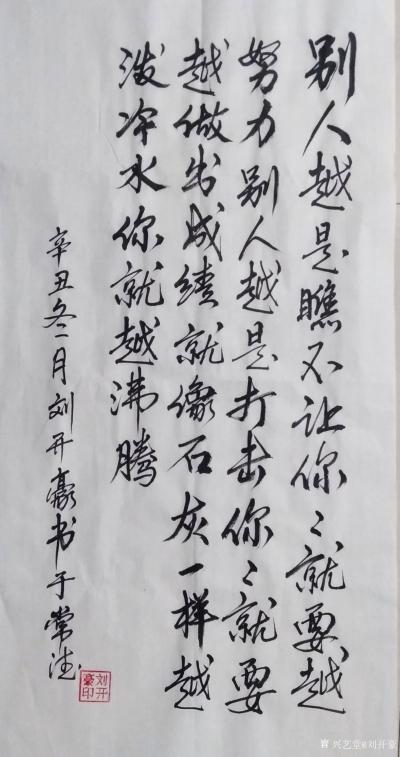 别人越是瞧不让你々就要越
努力别人越是打击你々就要
越做出成绩就像石灰一样越
泼冷水你就越沸腾
辛丑冬月刘开豪书于常德
刘开豪印
兴艺堂@刘开豪